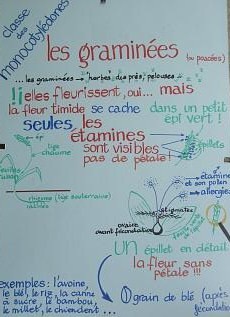 classe des
monocotylédones
les graminées (ou poacées)
... les graminées → herbes des prés, pelouses...
elles fleurissent, oui... mais
la fleur timide se cache dans un petit
épi vert !
seules, les
étamines
sont visibles
pas de pétale!
épi
tige
chaume
épillets
rhizome (tige souterraine)
racines
étamine
et son pollen
allergies
stigmates
ovaire
avant fécondation
un épillet en détail
la fleur sans
pétale !!!
exemples: l'avoine,
le blé, le riz, la canne
à sucre, le bambou,
le millet, le chiendent ...
grain de blé (après
fécondation